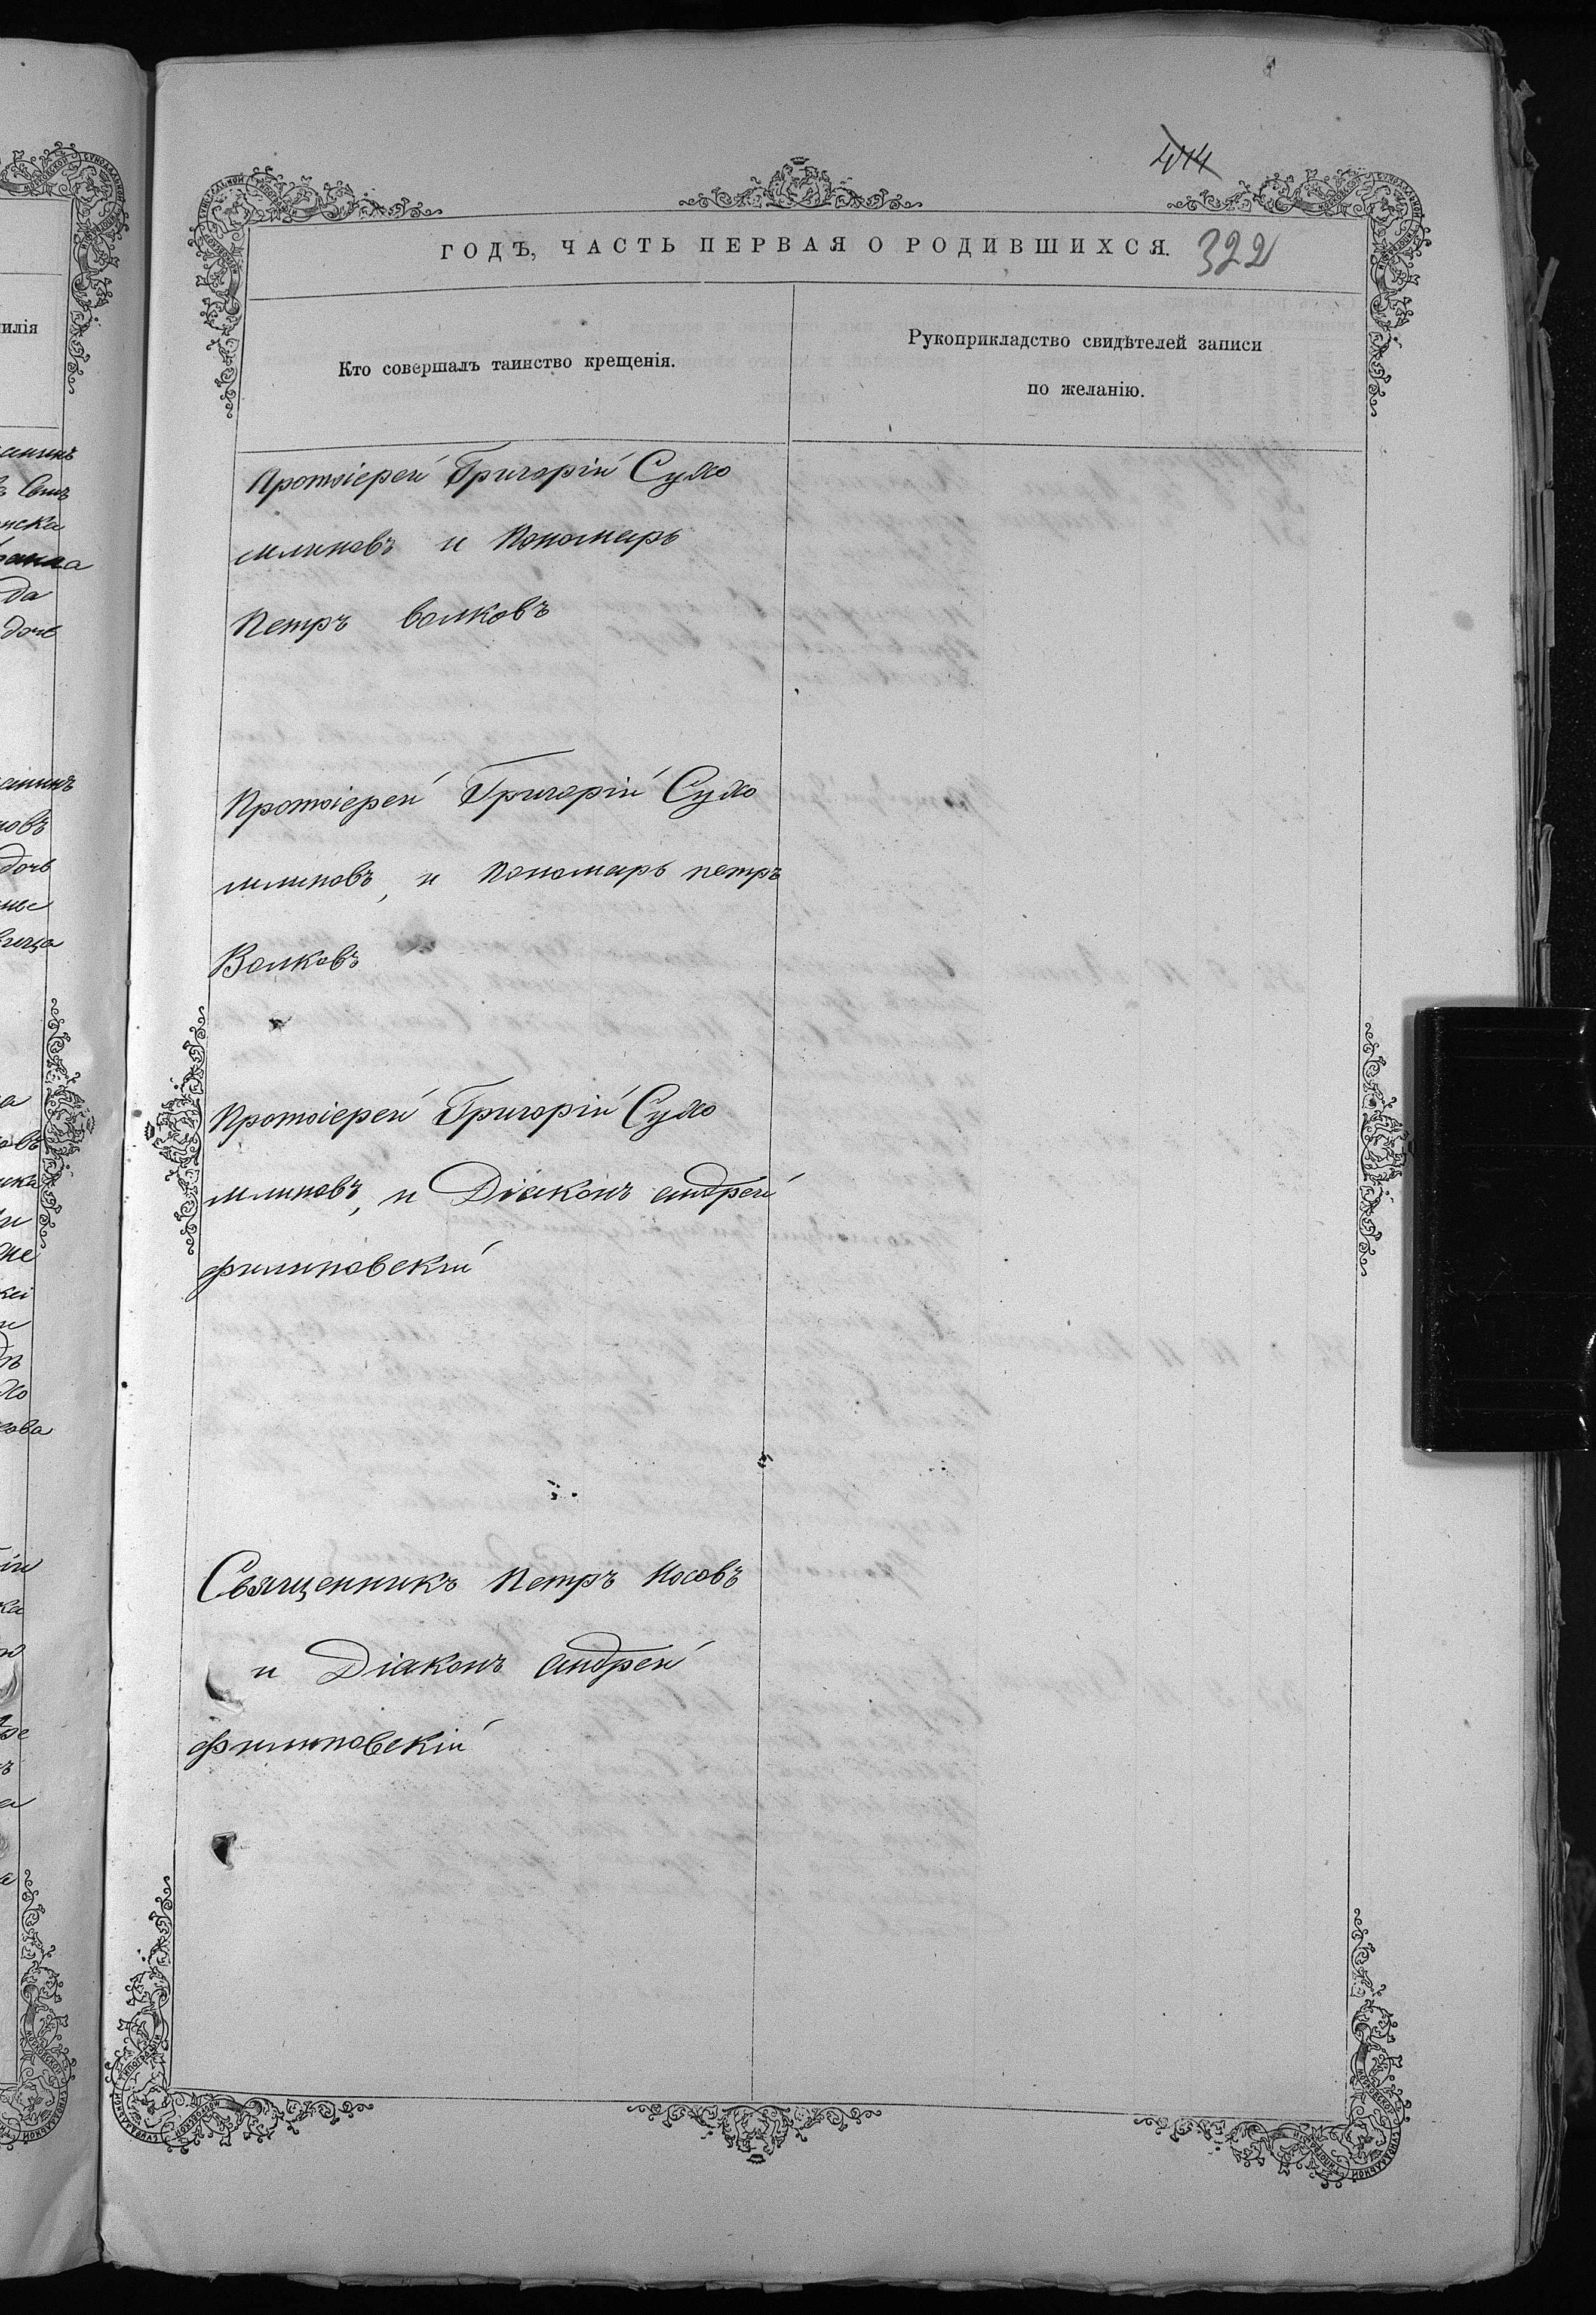 414
ГОДЪ, ЧАСТЬ ПЕРВАЯ О РОДИВШИХСЯ.
322
илія
Кто совершалъ таинство крещенія.
Рукоприкладство свидѣтелей записи
по желанію.
Протоіерей Григорій Сухо
млиновъ и Пономарь
Петръ Волковъ
Протоіерей Григорій Сухо
млиновъ, и Пономарь петръ
Волковъ
Протоіерей Григорій Сухо
млиновъ, и Діаконъ андрей
филиповскій
Священникъ Петръ Носовъ
и Діаконъ андрей
филиповскій